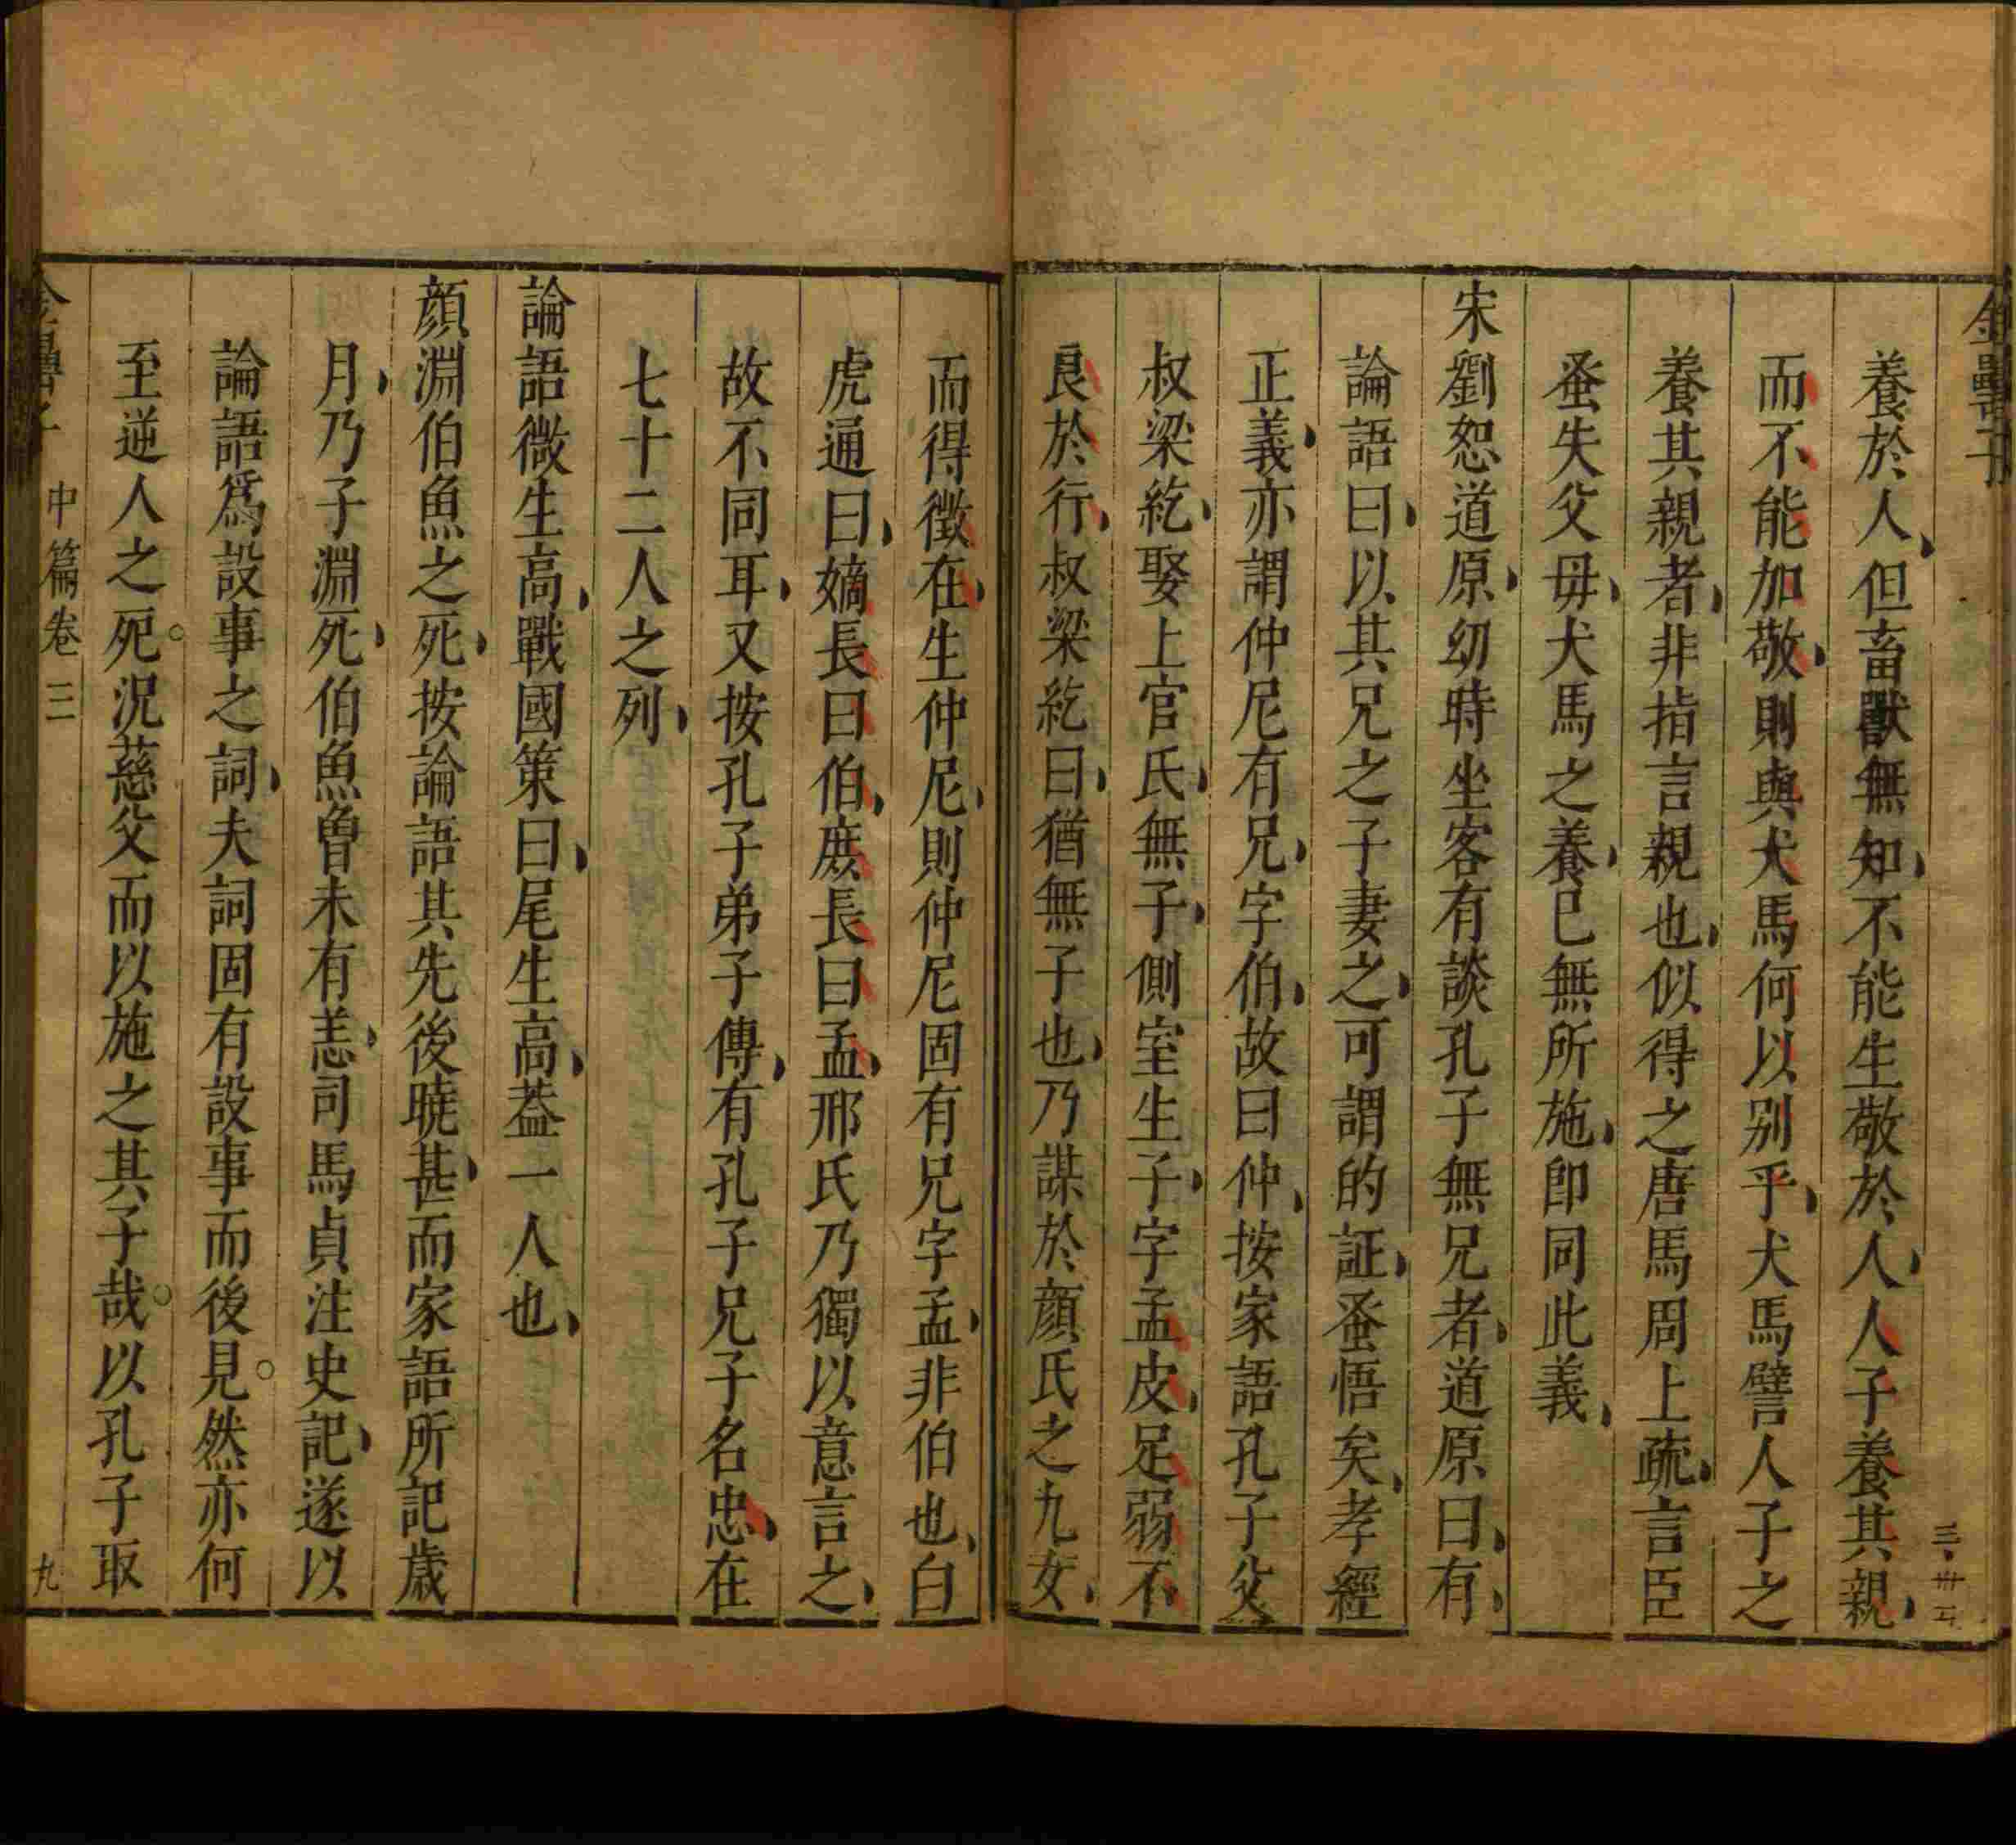 養於人但畜獸無知不能生敬於人人子養其親
而不能加敬則與犬馬何以别乎犬馬譬人子之
養其親者非指言親也似得之唐馬周上疏言臣
蚤失父毋犬馬之養已無所施卽同此義
宋劉恕道原幼時坐客有談孔子無兄者道原曰有
論語曰以其兄之子妻之可謂的証蚤悟矣孝經
正義亦謂仲尼有兄字伯故曰仲按家語孔子父
叔梁紇娶上官氏無子側室生子字孟皮足弱不
良於行叔梁紇曰猶無子也乃謀於顔氏之九女
而得徵在生仲尼則仲尼固有兄字孟非伯也白
虎通曰嫡長曰伯庶長曰孟邢氏乃獨以意言之
故不同耳又按孔子弟子傳有孔子兄子名忠在
七十二人之列
論語微生高戰國策曰尾生高葢一人也
顔淵伯魚之死按論語其先後曉甚而家語所記歲
月乃子淵死伯魚曾未有恙司馬貞注史記遂以
論語爲設事之詞夫詞固有設事而後見然亦何
至逆人之死況慈父而以施之其子哉以孔子取
中篇卷三
九